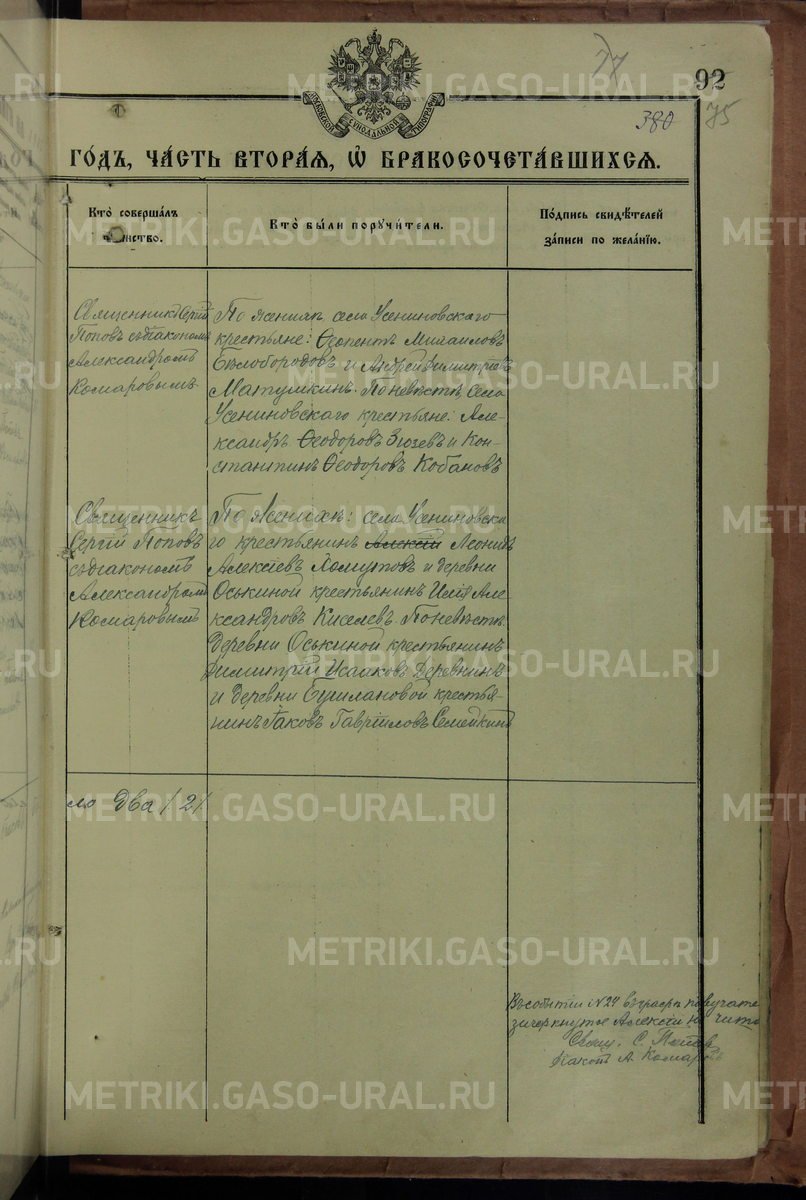 77
92
380
75
МОСКОВСКОЙ СѴНОДАЛЬНОЙ ТИПОГРАФІИ
ГОДЪ, ЧАСТЬ ВТОРАѦ, Ѡ БРАКОСОЧЕТАВШИХСѦ.
Кто совершалъ
таинство.
Кто были поручители.
Подпись свидѣтелей
записи по желанію.
Священникъ Сергій
Поповъ съ діакономъ
Александромъ
Комаровымъ
По женихѣ села Усениновскаго
крестьяне: Ѳеопентъ Михаиловъ
Бѣлобородовъ и Андрей Димитріевъ
Матушкинъ. По невѣстѣ села
Усениновскаго крестьяне: Але-
ксандръ Ѳеодоровъ Зюзевъ и Кон-
стантинъ Ѳеодоровъ Кобановъ
Священникъ
Сергій Поповъ
съ діакономъ
Александромъ
Комаровымъ
По женихѣ: села Усениновска
го крестьянинъ Алексій Леонидъ
Алексіевъ Хомутовъ и деревни
Оськиной крестьянинъ Але-
ксандровъ Киселевъ. По невѣстѣ
деревни Оськиной крестьянинъ
Димитрій Исааковъ Деревнинъ
и деревни крестья-
нинъ Іаковъ Гавріиловъ Семейкинъ
ло два /2/
Въ событіи №24 въ графѣ поручите
зачеркнутое Алексій не чита
Свящ. С. Поповъ
А. Комаровъ
METRIKI.GASO-URAL.RU